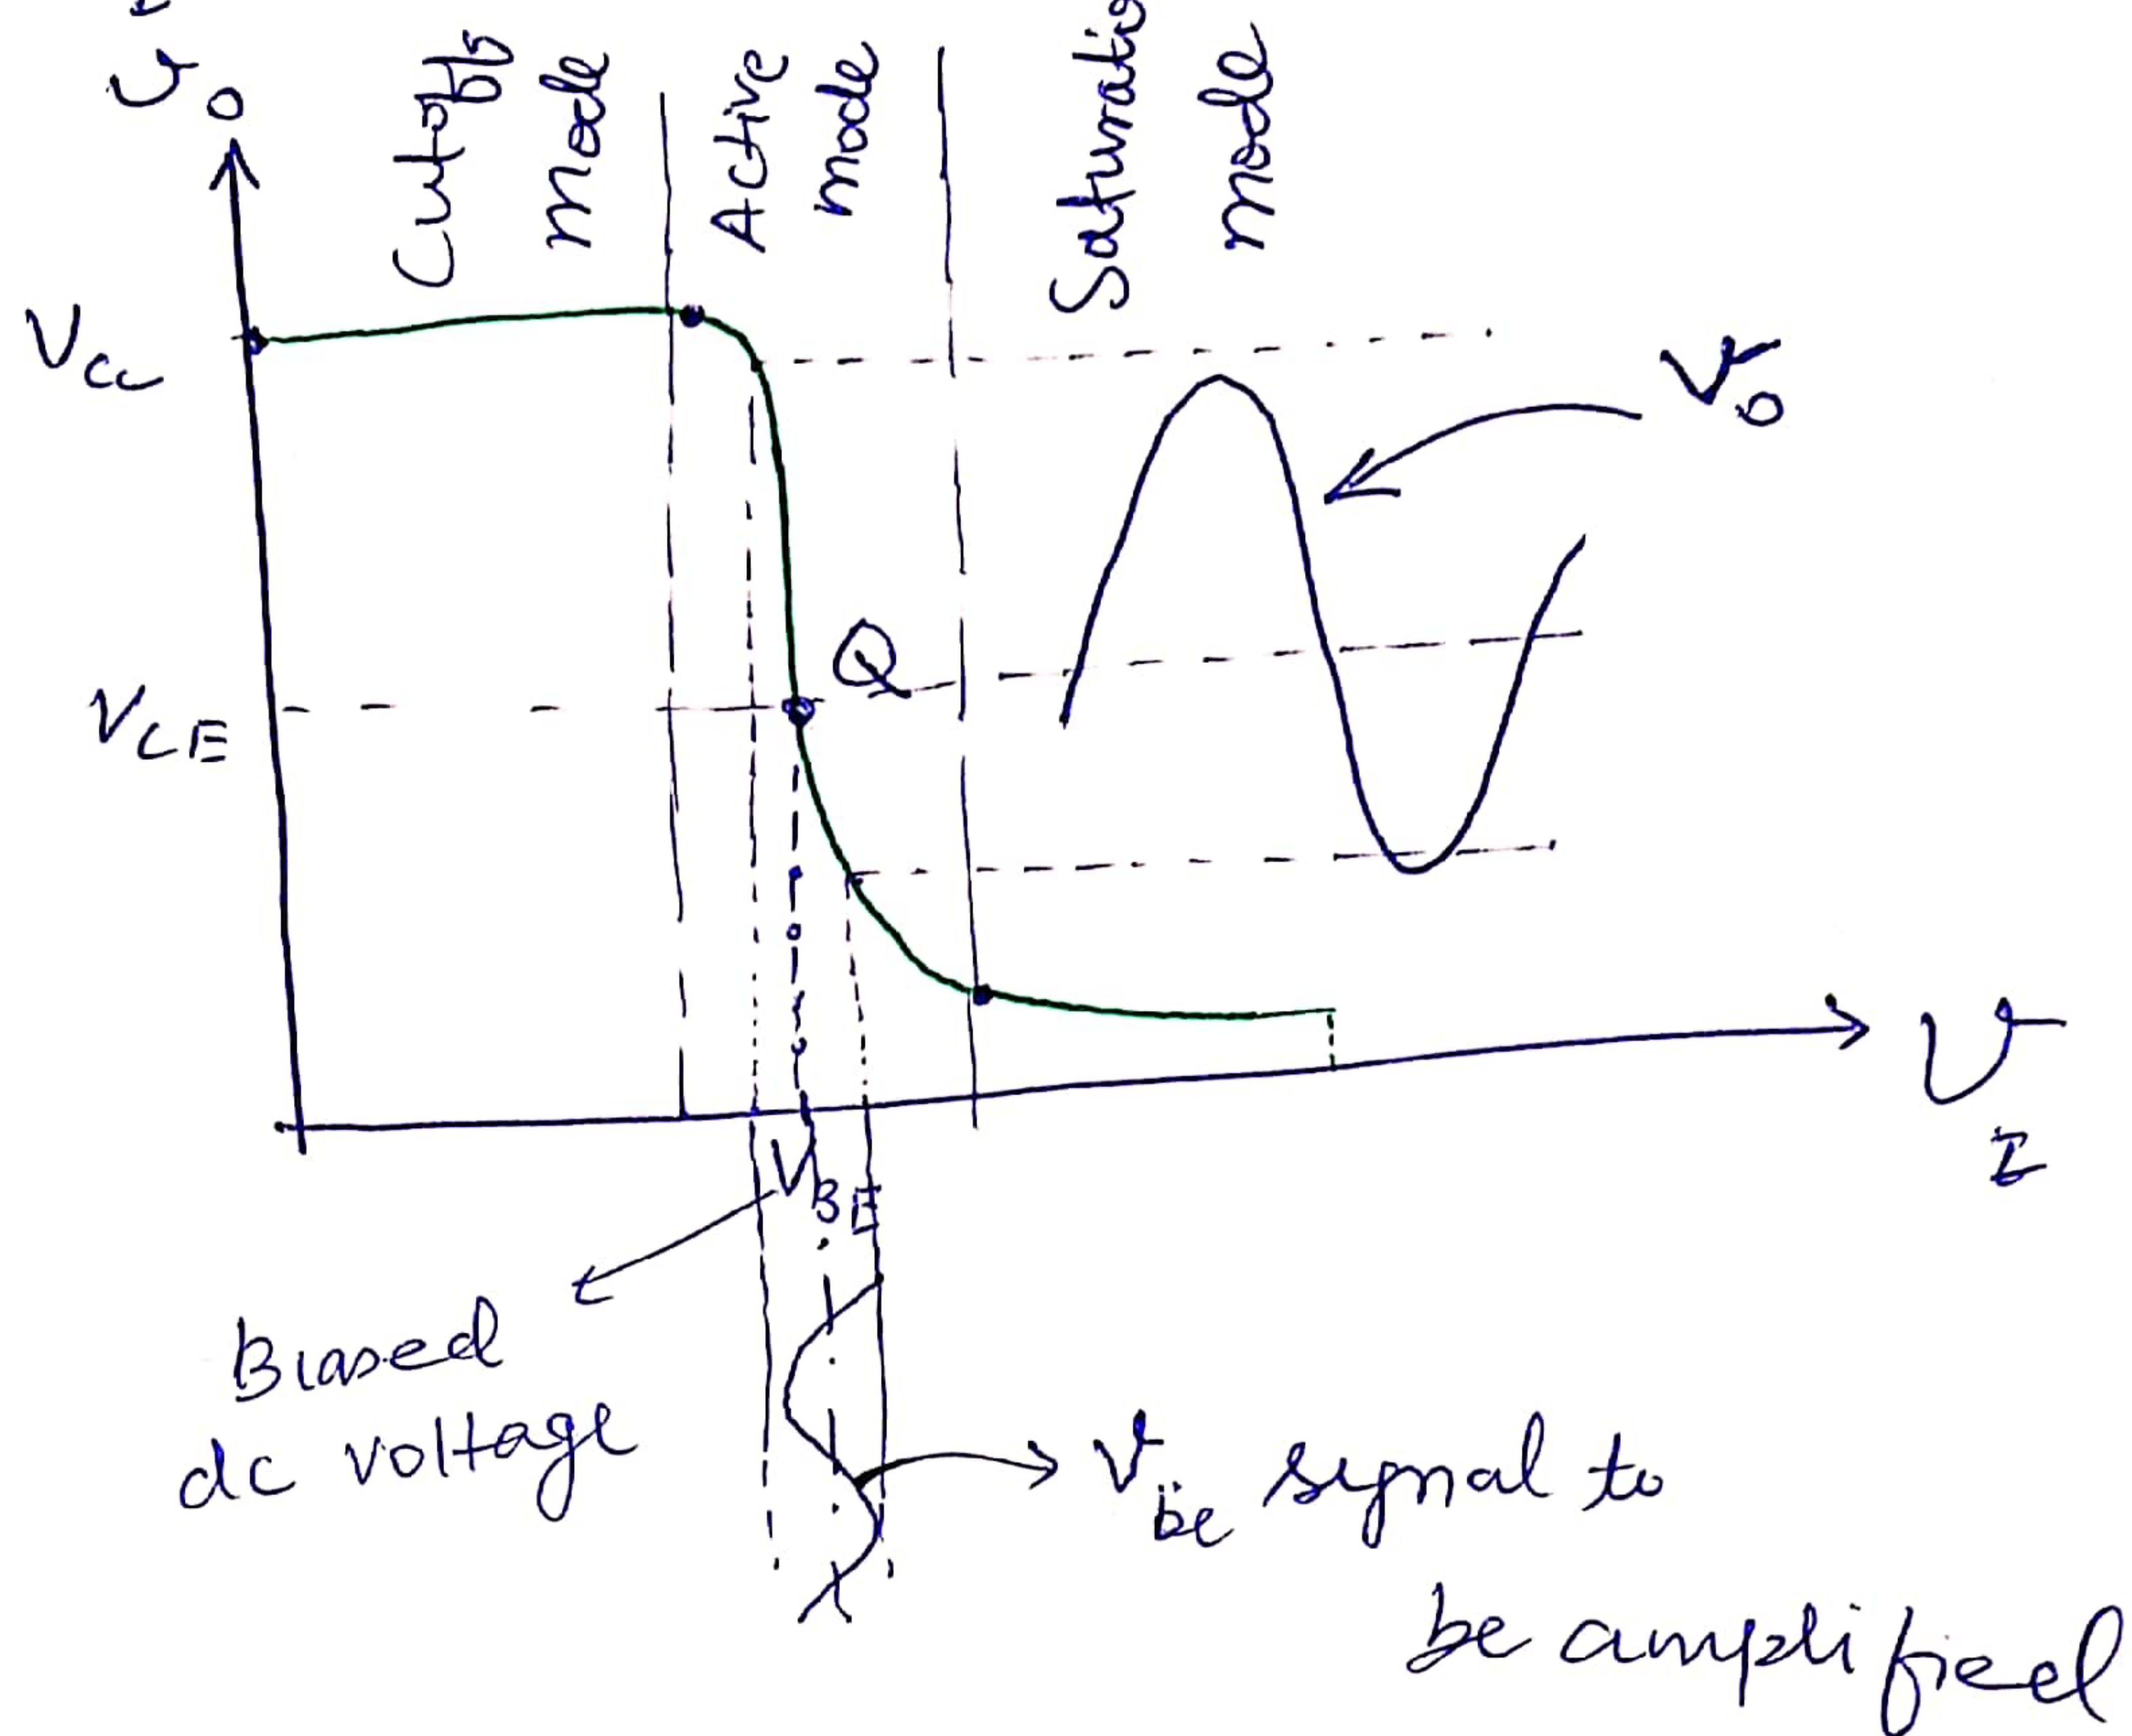 v₀
Cut-off
mode
Active
mode
mode
V_CC
V₀
V_CE
Q
V_I
V_BE
Biased
dc voltage
V_be signal to
be amplified